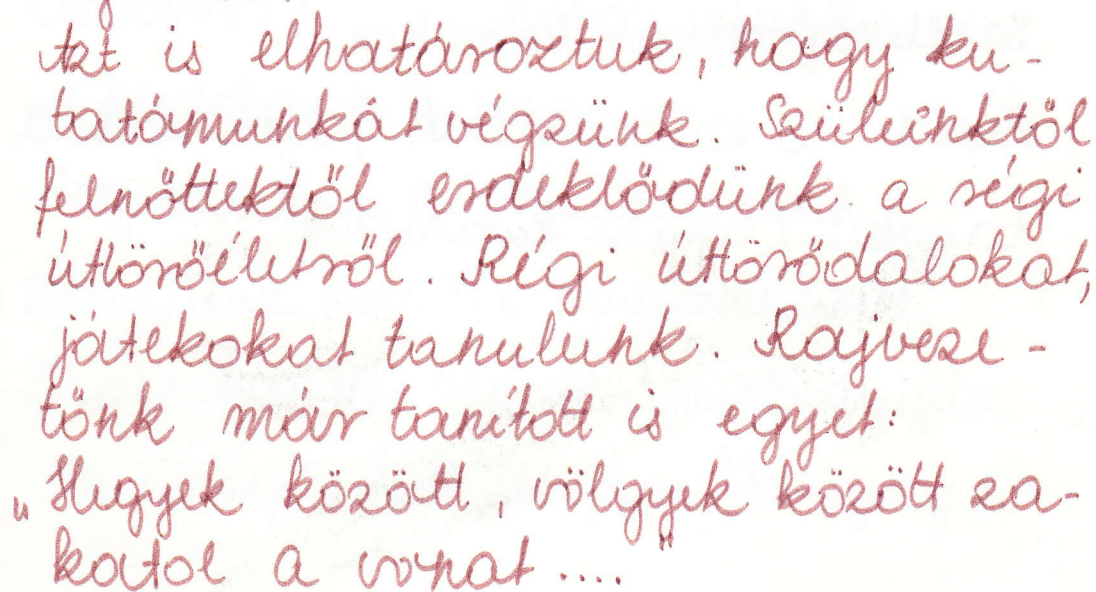 Azt is elhatároztuk, hogy ku-
tatómunkát végzünk. Szüleinktől
felnőttektől erdeklődünk a régi
úttörőéletről. Régi úttörődalokat,
játékokat tanulunk. Rajveze-
tőnk már tanított is egyet:
„Hegyek között, völgyek között za-
katol a vonat...."